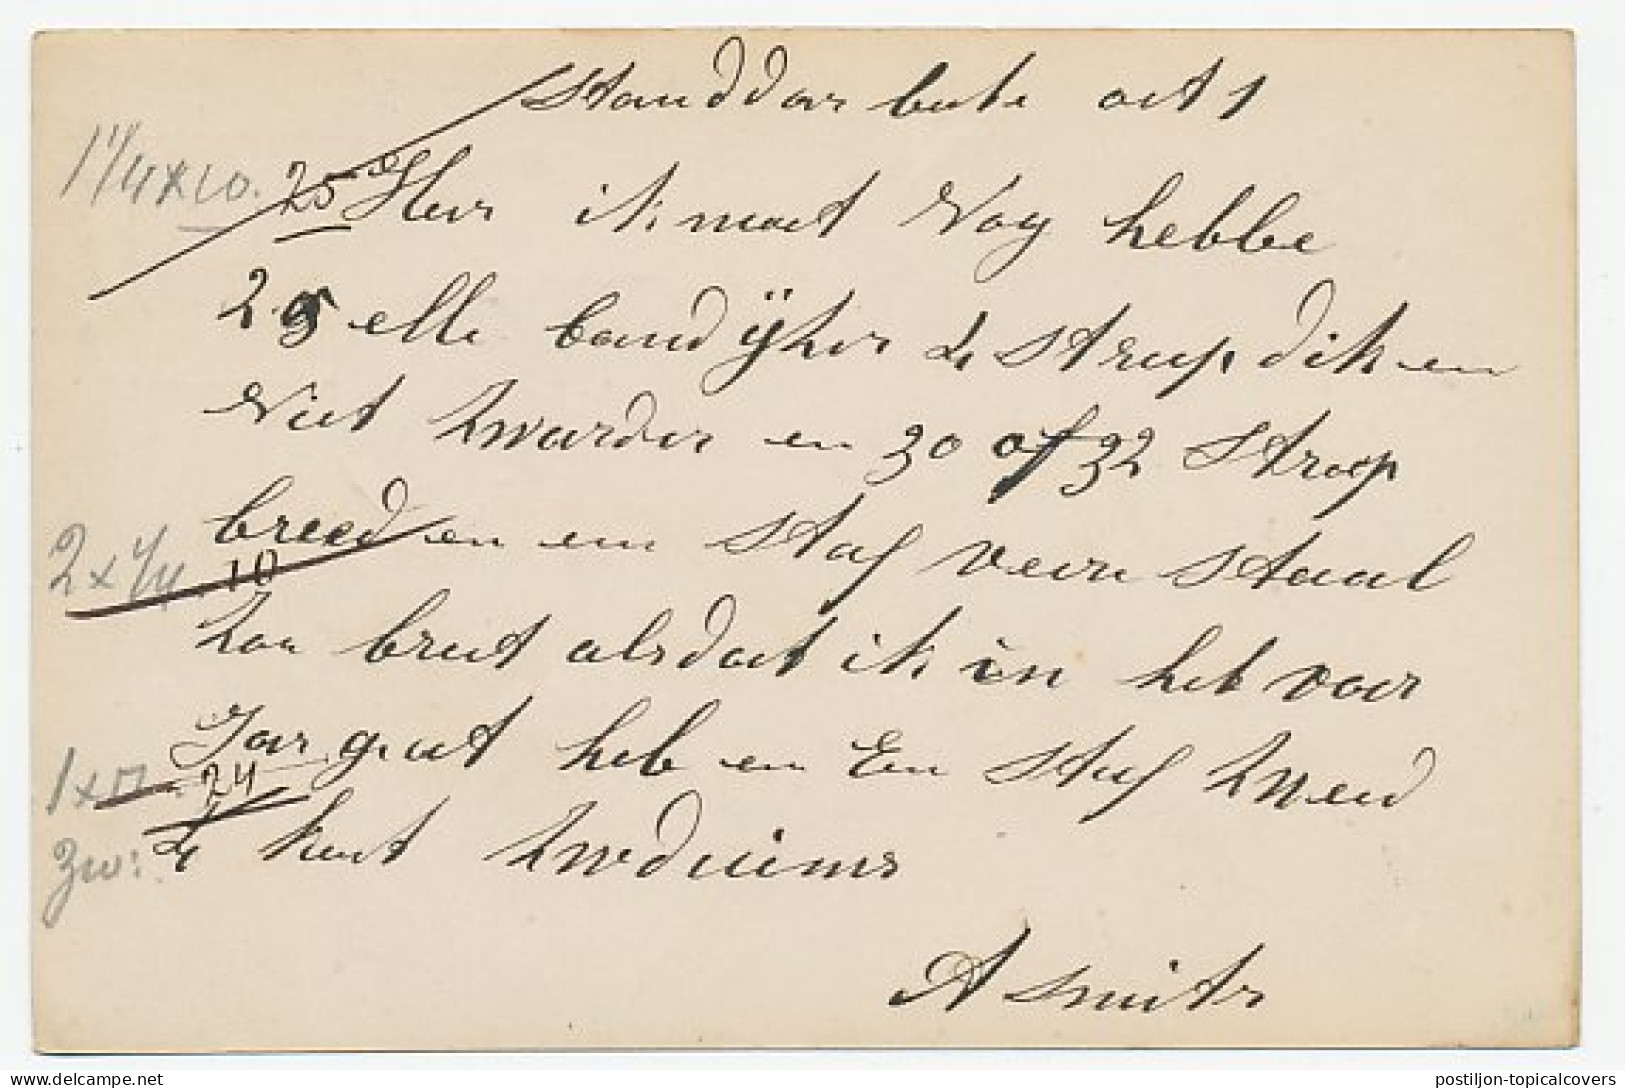 Standdar bute oct 1
1 1/4 x 10. 25 Heer ik moet Nog hebbe
25 elle band ijzer 4 streep dik en
Niet zwarder en 30 of 32 streep
breed en een staf veere staal
2 x 1/4 10
zoo breet alsdat ik in het voor
Jaar geat heb en En staf zweed
1 x 24
4 kant zwduims
zw:
A Smits
hippostcard.com
postiljon-topicalcovers